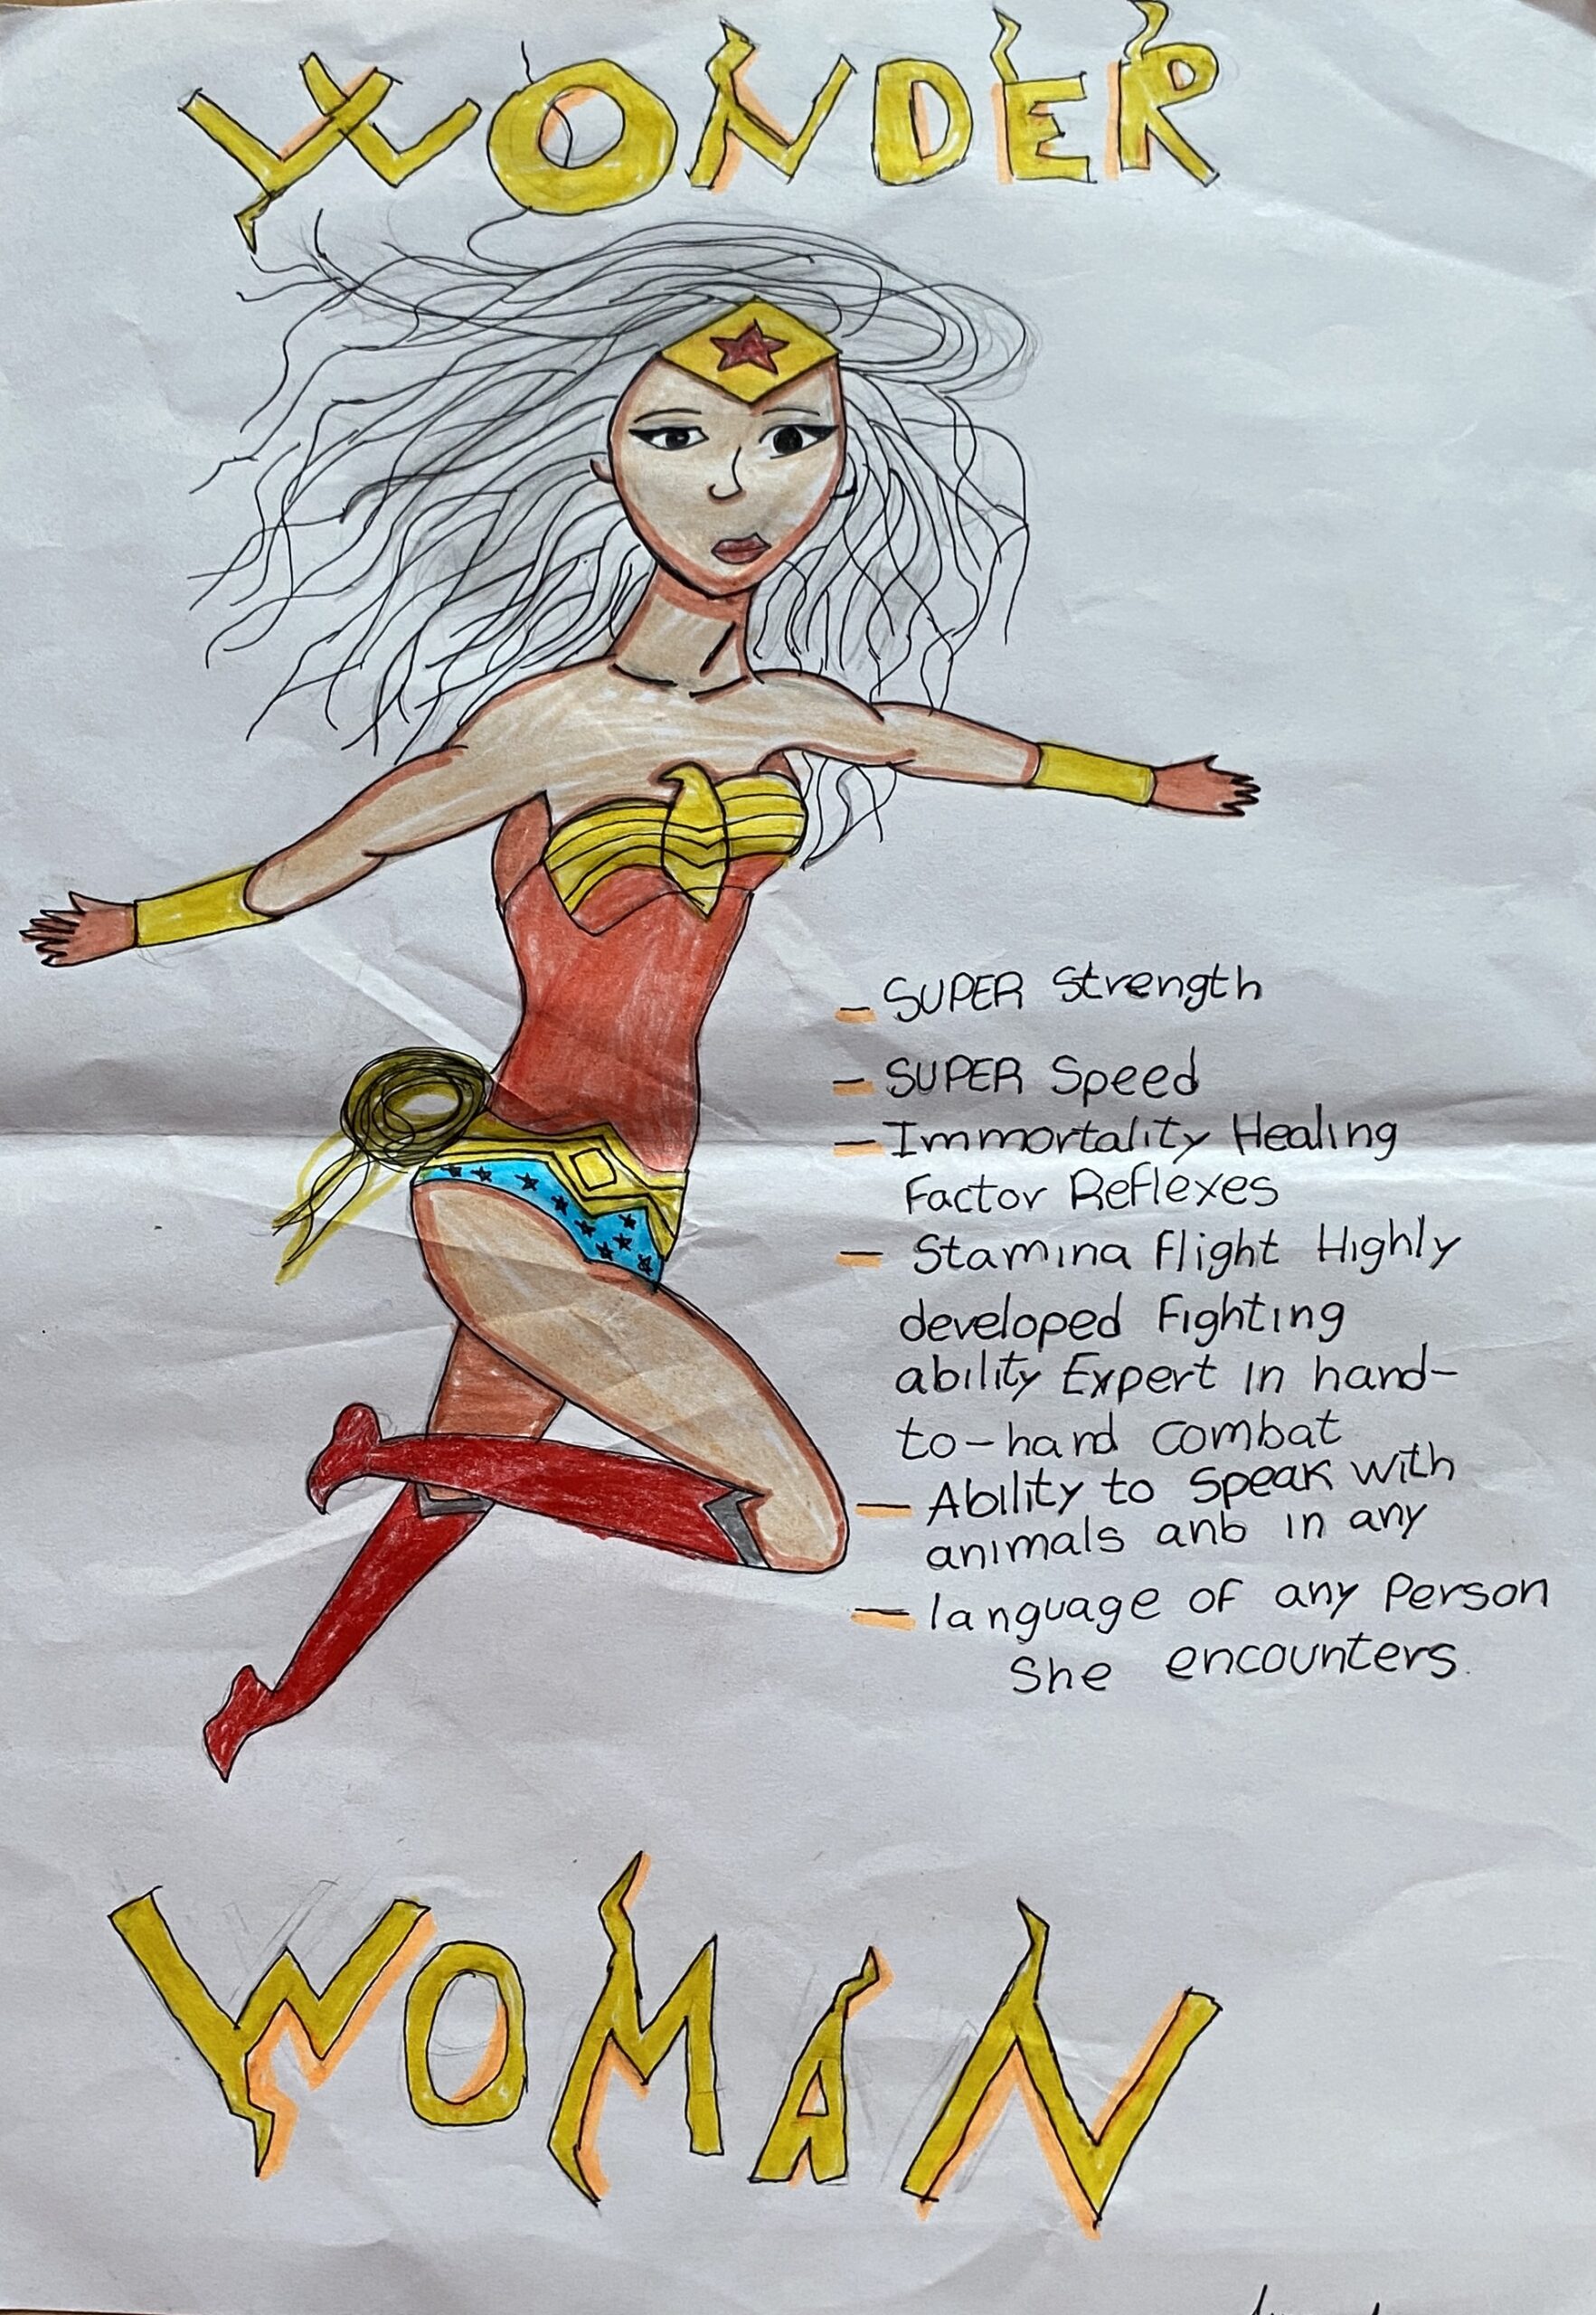 WONDER
– SUPER Strength
– SUPER Speed
– Immortality Healing
Factor Reflexes
– Stamina Flight Highly
developed Fighting
ability Expert in hand-
to-hand combat
– Ability to speak with
animals anb in any
– language of any Person
She encounters.
WOMAN